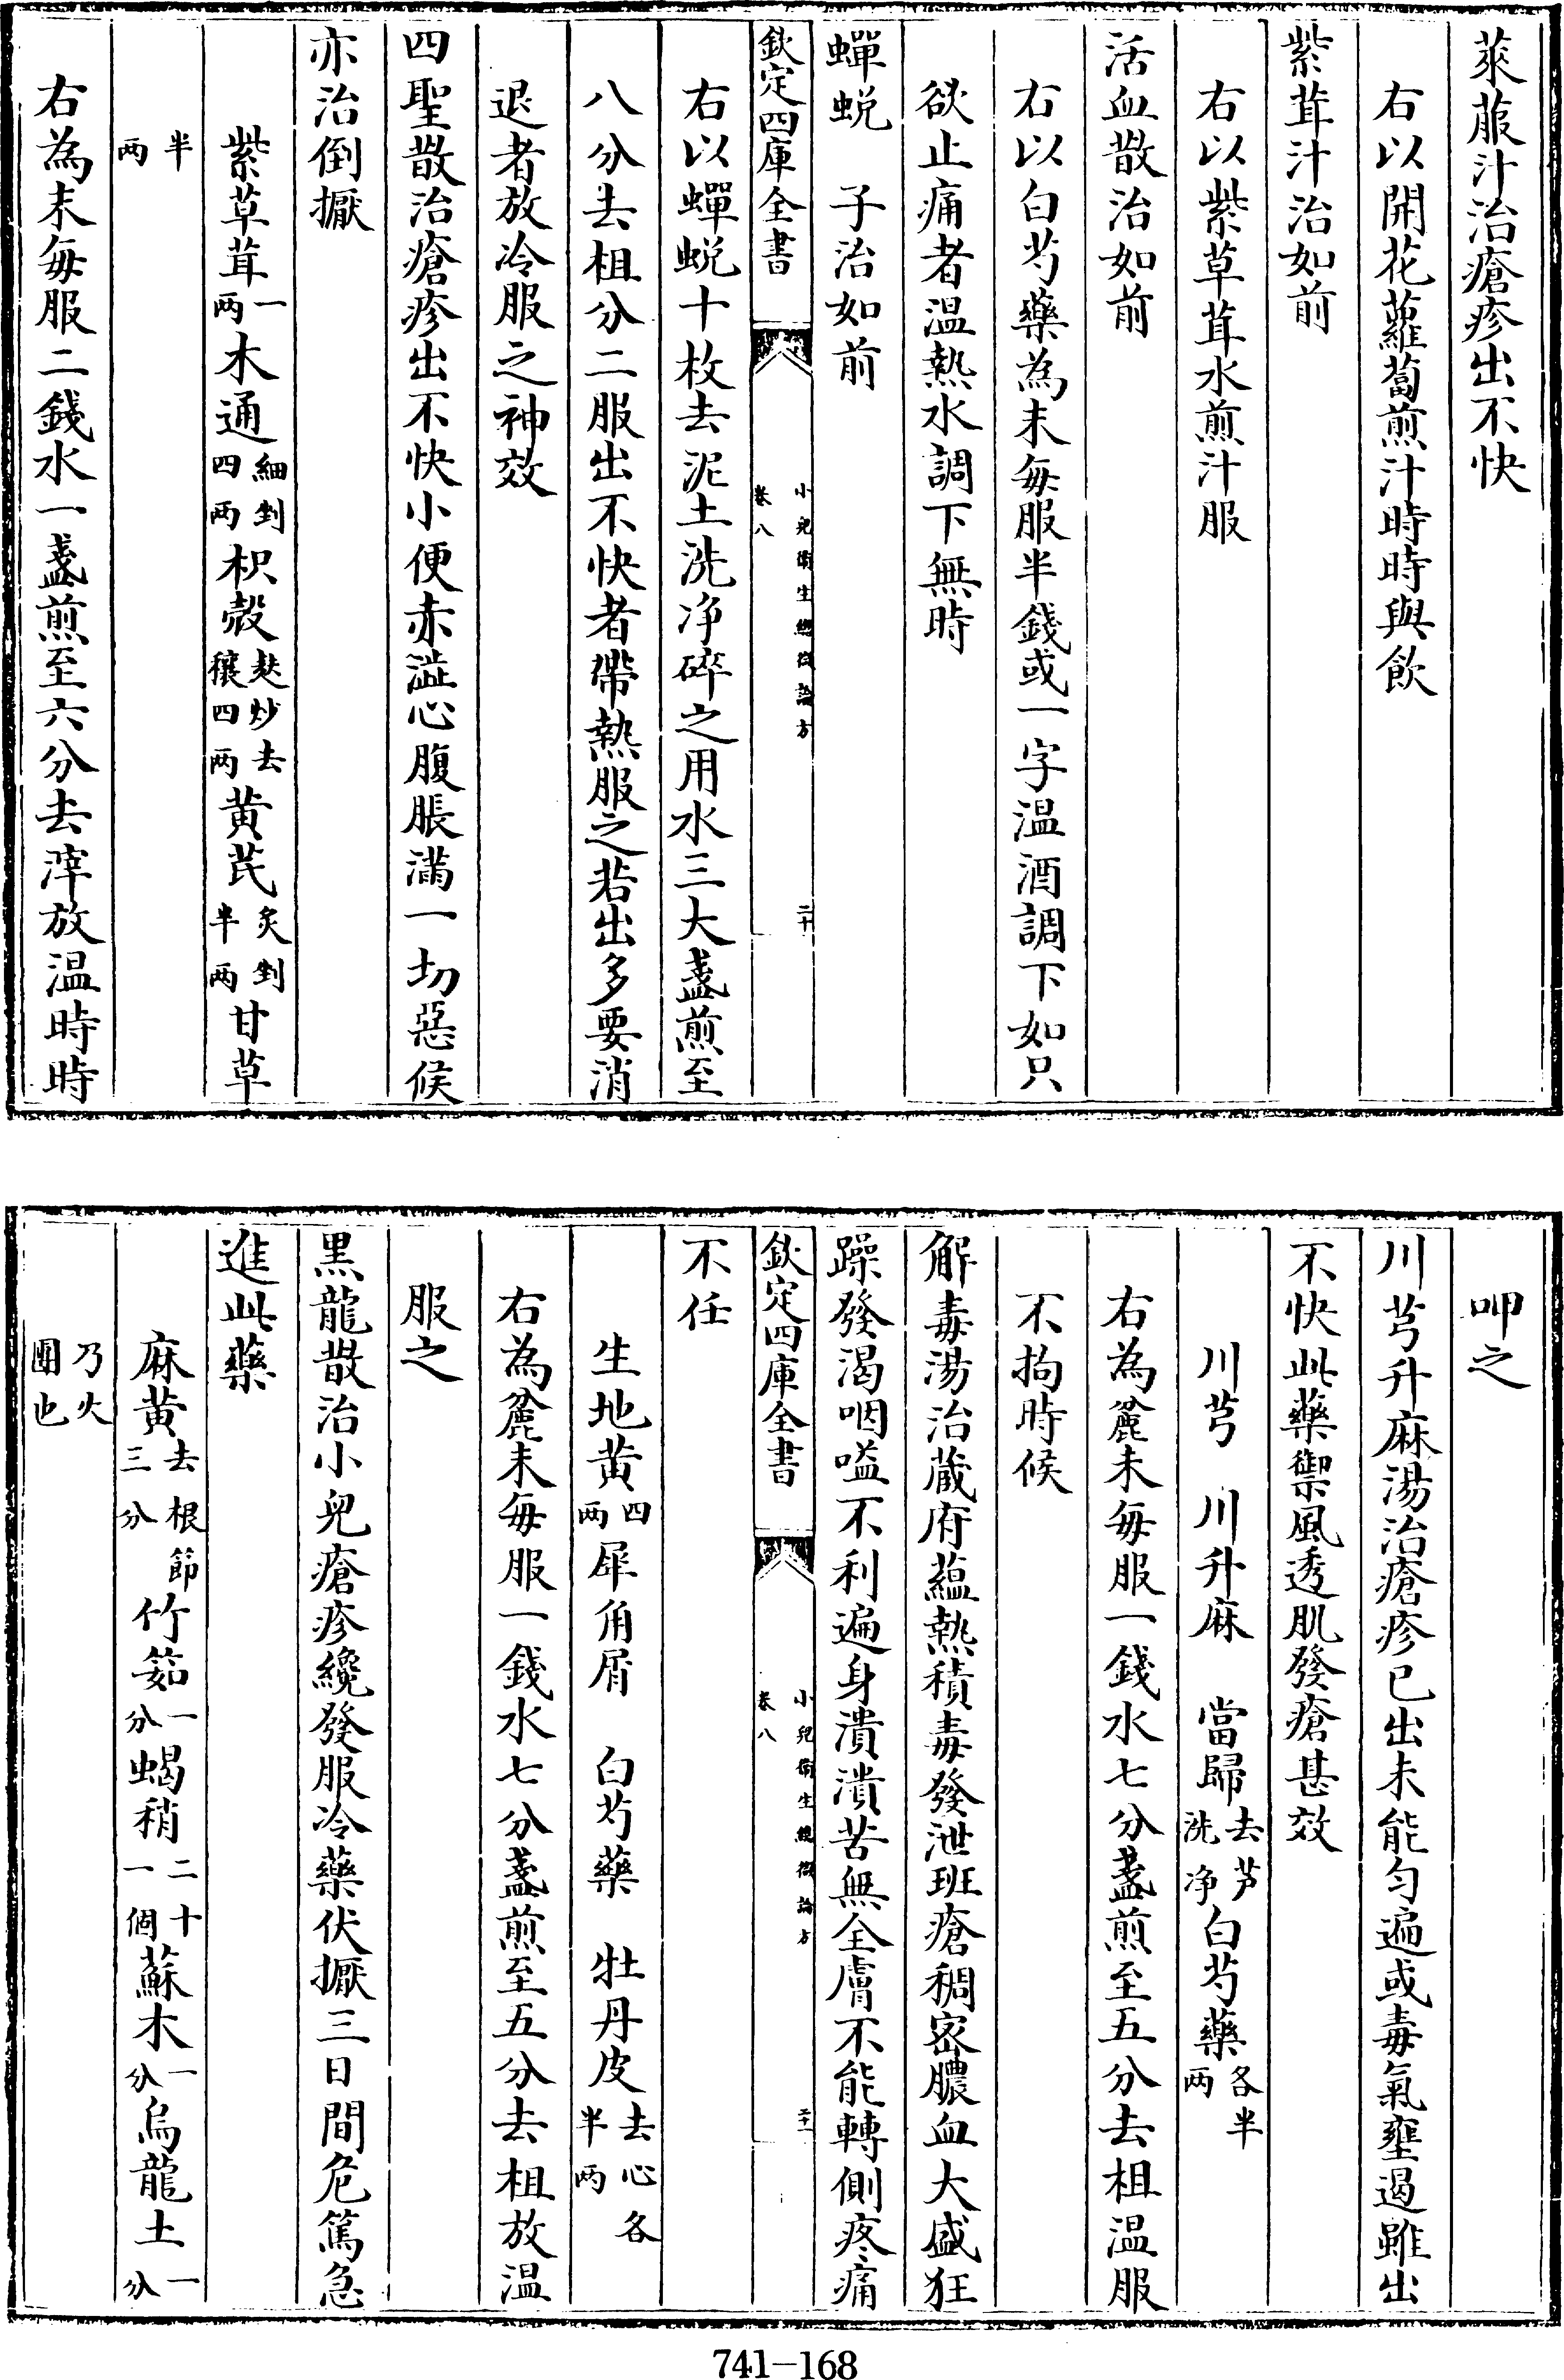 萊菔汁治瘡疹出不快
右以開花蘿蔔煎汁時時與飲
紫茸汁治如前
右以紫草茸水煎汁服
活血散治如前
右以白芍藥為末每服半錢或一字温酒調下如只
欲止痛者温熱水調下無時
蟬蜕　子治如前
欽定四庫全書
小兒衛生總微論方
卷八
二十
右以蟬蜕十枚去泥土洗净碎之用水三大盞煎至
八分去柤分二服出不快者帶熱服之若出多要消
退者放冷服之神效
四聖散治瘡疹出不快小便赤澁心腹脹滿一切惡候
亦治倒擫
紫草茸一两木通細剉四两枳殼麸炒去穰四两黄芪炙剉半两甘草
半两
右為末每服二錢水一盞煎至六分去滓放温時時
呷之
川芎升麻湯治瘡疹已出未能匀遍或毒氣壅遏雖出
不快此藥禦風透肌發瘡甚效
川芎　川升麻　當歸去芦洗净白芍藥各半两
右為麄末每服一錢水七分盞煎至五分去柤温服
不拘時候
解毒湯治蔵府蘊熱積毒發泄班瘡稠宻膿血大盛狂
躁發渇咽嗌不利遍身潰潰苦無全膚不能轉側疼痛
欽定四庫全書
小兒衛生總微論方
卷八
二十一
不任
生地黄四两犀角屑　白芍藥　牡丹皮去心各半两
右為麄末每服一錢水七分盞煎至五分去柤放温
服之
黒龍散治小兒瘡疹纔發服冷藥伏擫三日間危篤急
進此藥
麻黄去根節三分竹茹一分蝎稍二十一個蘇木一分烏龍土一分
乃火圍也
741-168